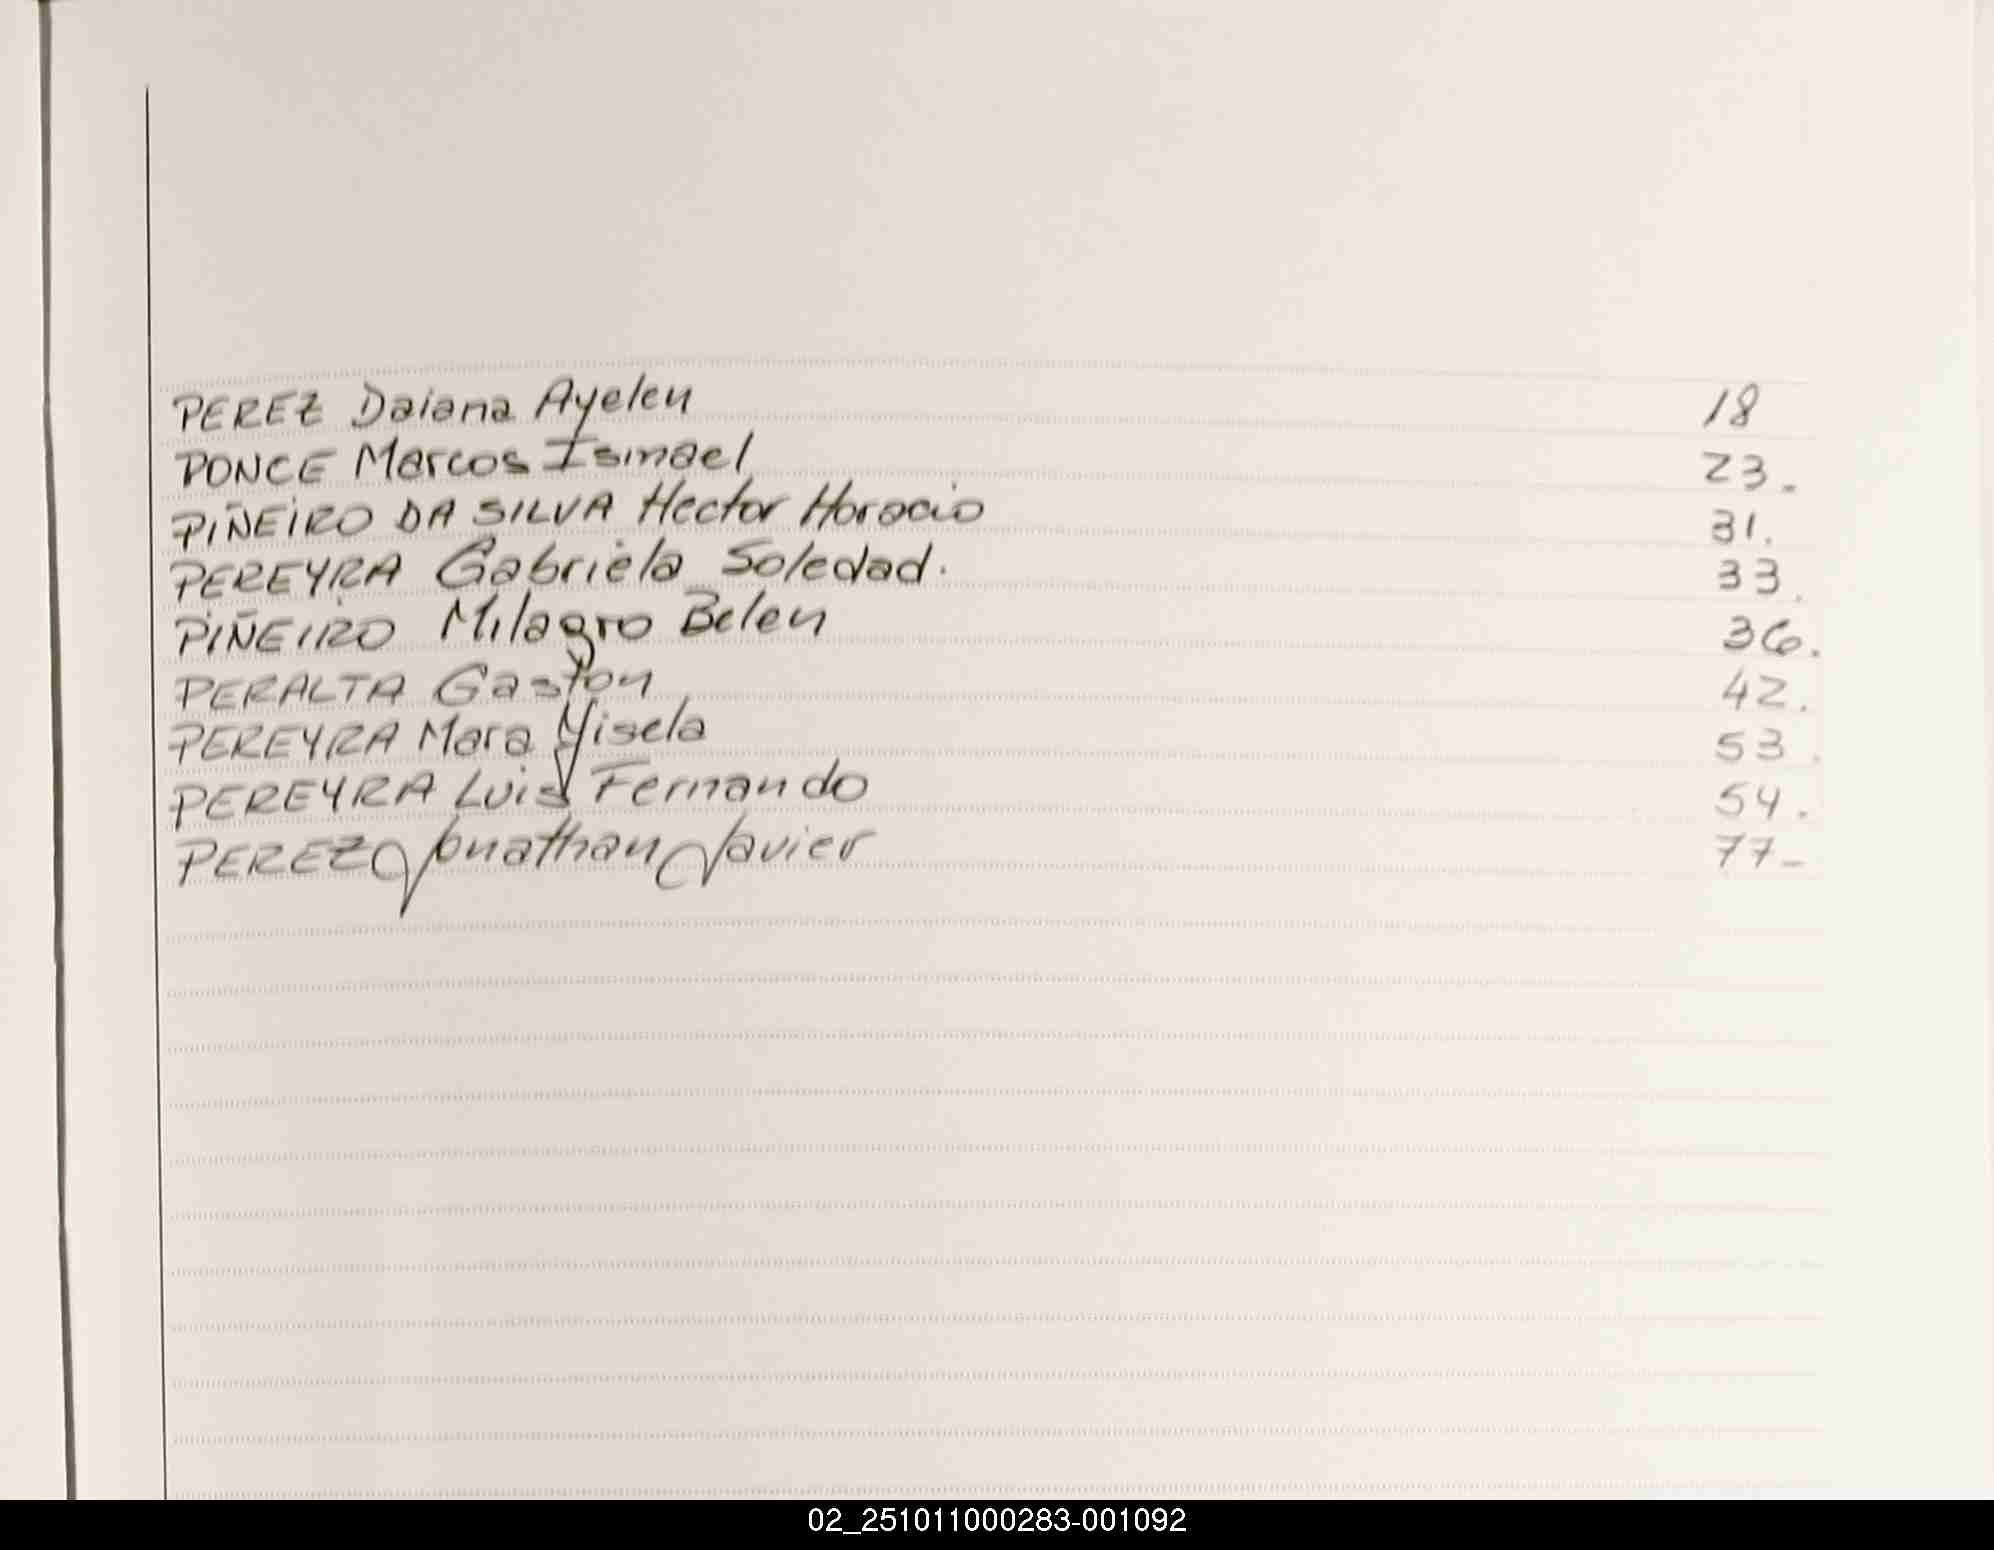 PEREZ Daiana Ayelen 18
PONCE Marcos Ismael 23.
PIÑEIRO DA SILVA Hector Horacio 31.
PEREYRA Gabriela Soledad. 33.
PIÑEIRO Milagro Belen 36.
PERALTA Gaston 42.
PEREYRA Mara Yisela 53.
PEREYRA Luis Fernando 54.
PEREZ Jonathan Javier 77-
02_251011000283-001092